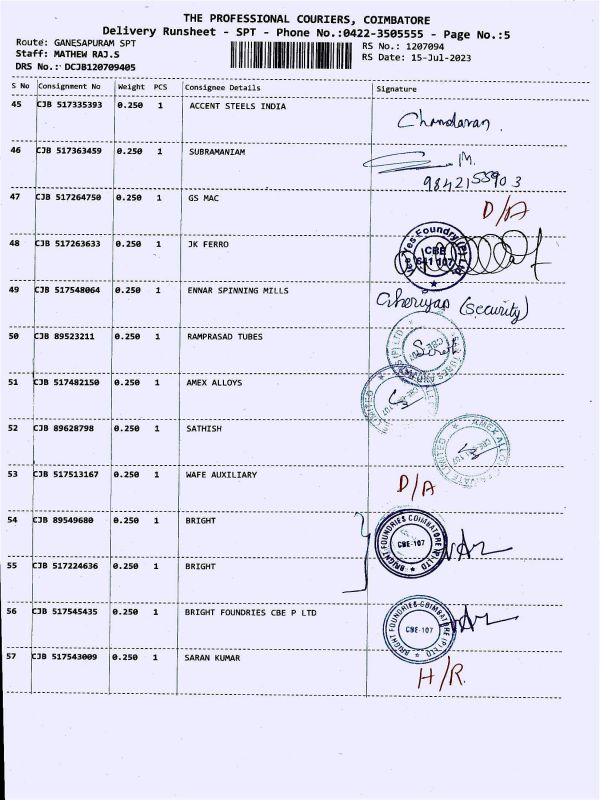 THE PROFESSIONAL COURIERS, COIMBATORE
Delivery Runsheet - SPT - Phone No.:0422-3505555 - Page No.:5
Route: GANESAPURAM SPT
Staff: MATHEW RAJ.S
DRS No.: DCJB120709405
RS No.: 1207094
RS Date: 15-Jul-2023
S No Consignment No Weight PCS Consignee Details Signature
45 CJB 517335393 0.250 1 ACCENT STEELS INDIA
Chandaran.
46 CJB 517363459 0.250 1 SUBRAMANIAM
M.
9842155903
47 CJB 517264750 0.250 1 GS MAC
D/A
48 CJB 517263633 0.250 1 JK FERRO
Yes Foundry (P) Ltd
CBE
641 107
49 CJB 517548064 0.250 1 ENNAR SPINNING MILLS
Cheriyan (security)
50 CJB 89523211 0.250 1 RAMPRASAD TUBES
51 CJB 517482150 0.250 1 AMEX ALLOYS
LIMITED
52 CJB 89628798 0.250 1 SATHISH
AMEX ALLOYS PRIVATE LIMITED
53 CJB 517513167 0.250 1 WAFE AUXILIARY
D/A
54 CJB 89549680 0.250 1 BRIGHT
BRIGHT FOUNDRIES COIMBATORE (P) LTD
CBE-107
55 CJB 517224636 0.250 1 BRIGHT
56 CJB 517545435 0.250 1 BRIGHT FOUNDRIES CBE P LTD
BRIGHT FOUNDRIES COIMBATORE (P) LTD
CBE-107
57 CJB 517543009 0.250 1 SARAN KUMAR
H/R.